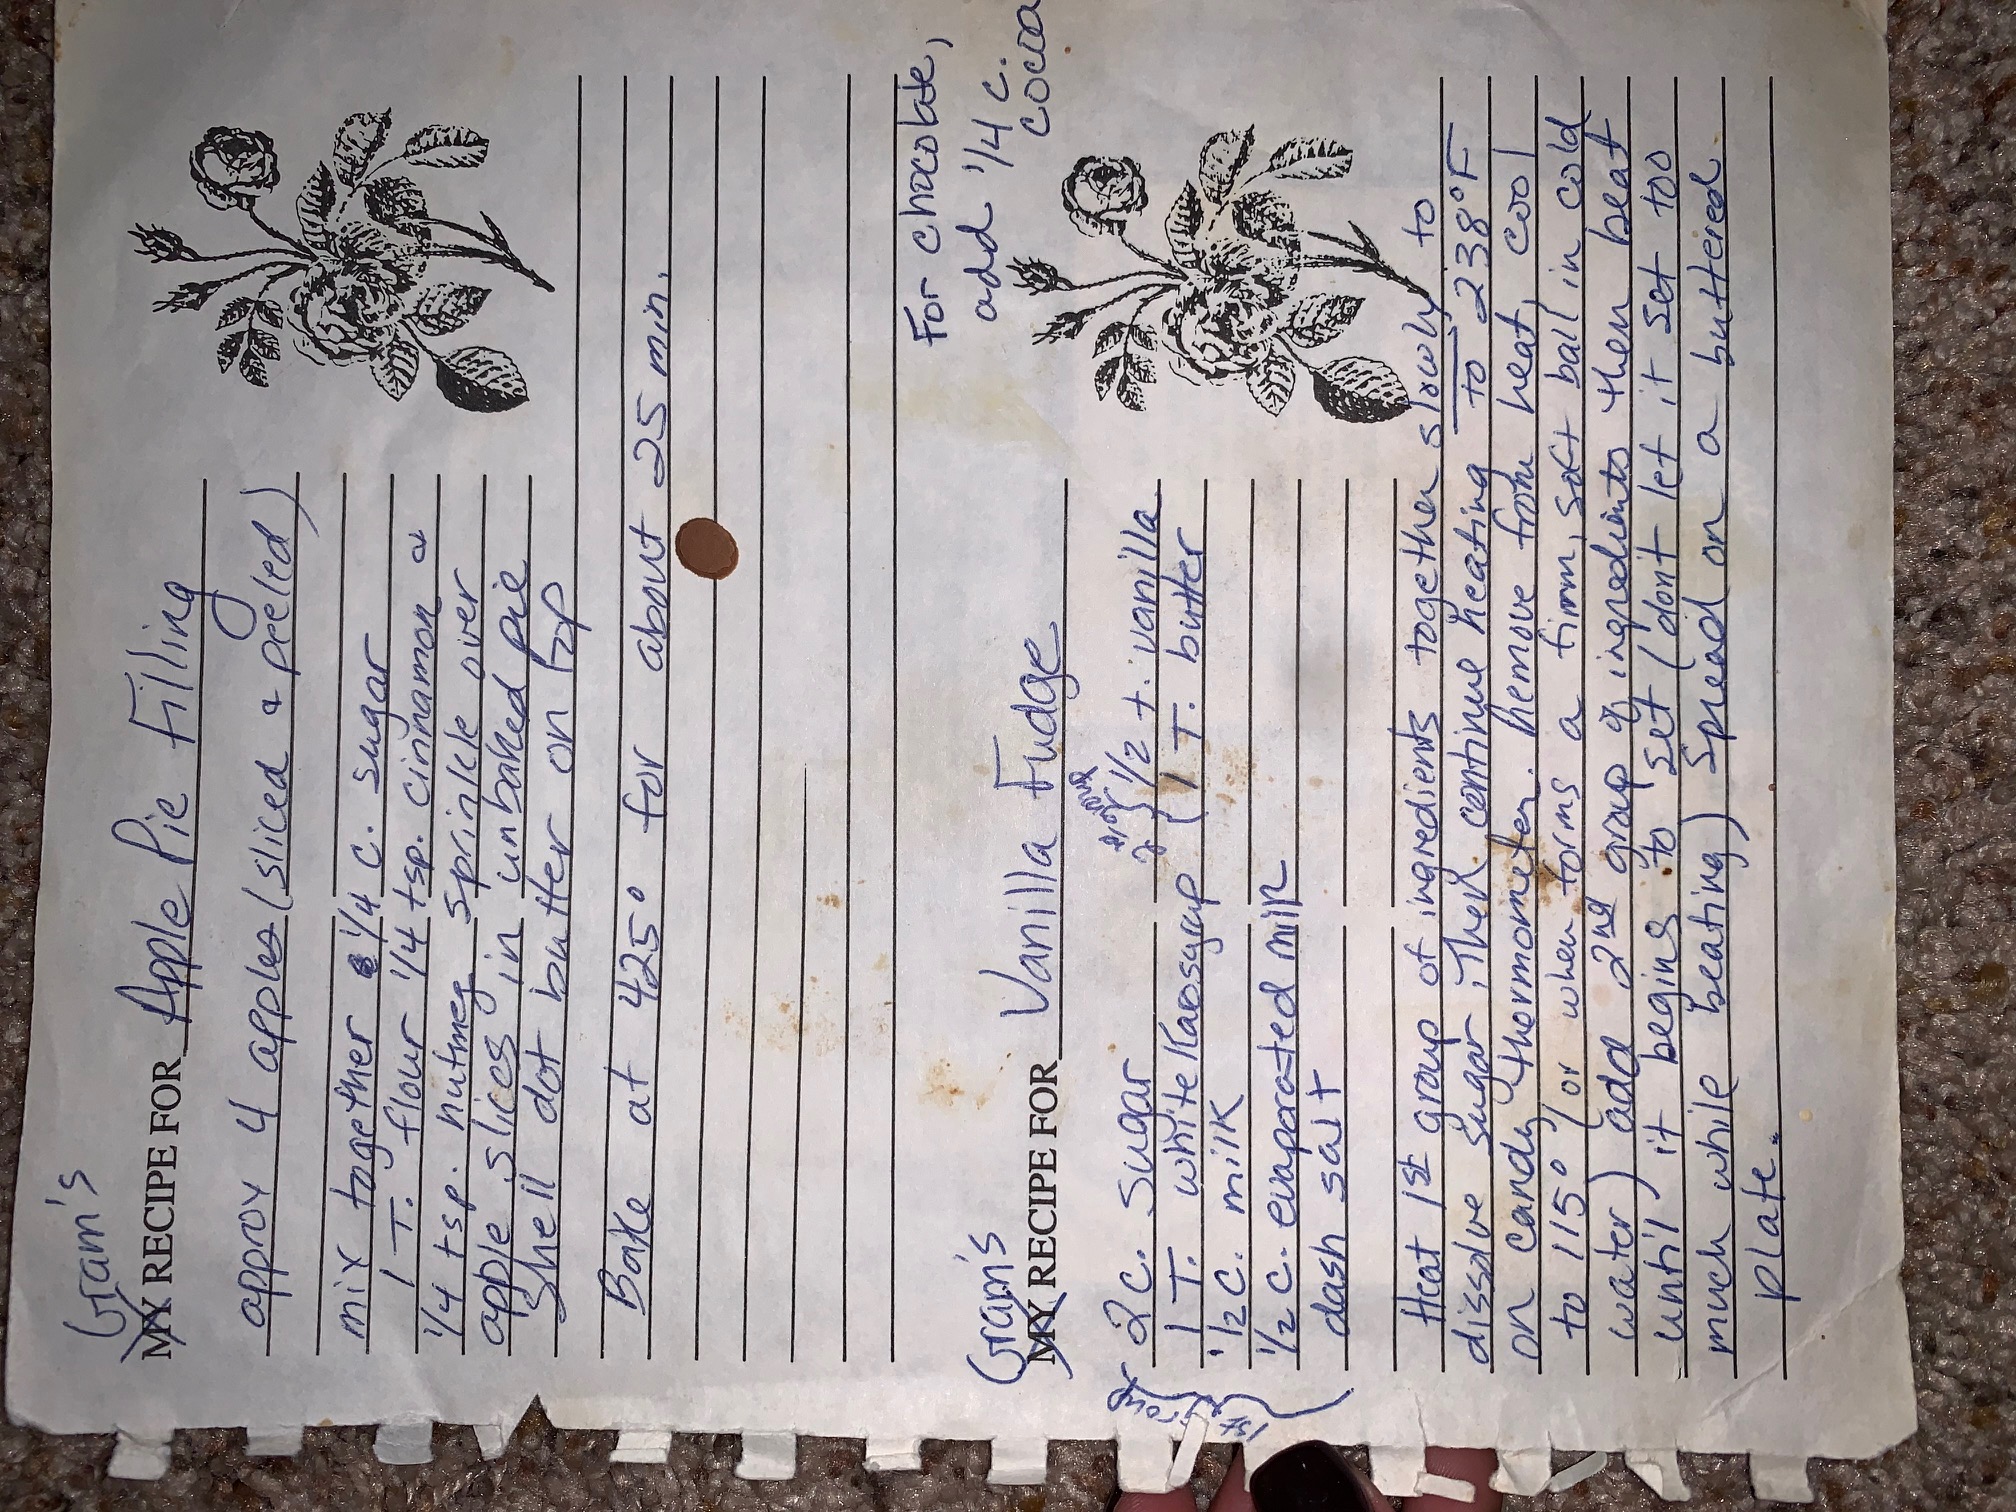 Gram's
MY RECIPE FOR Apple Pie Filling
approx 4 apples (sliced & peeled)
mix together 1/4 c. sugar
1 T. flour 1/4 tsp. cinnamon &
1/4 tsp. nutmeg sprinkle over
apple slices in unbaked pie
shell dot butter on top
Bake at 425° for about 25 min.
For chocolate,
add 1/4 c.
cocoa
Gram's
MY RECIPE FOR Vanilla Fudge
1st group
2 c. sugar
1 T. white Karo syrup
1/2 c. milk
1/2 c. evaporated milk
dash salt
2nd group
1/2 t. vanilla
1 T. butter
Heat 1st group of ingredients together slowly to
dissolve sugar, then continue heating to 238°F
on candy thermometer. Remove from heat, cool
to 115° (or when forms a firm, soft ball in cold
water) add 2nd group of ingredients then beat
until it begins to set (don't let it set too
much while beating) Spread on a buttered
plate.